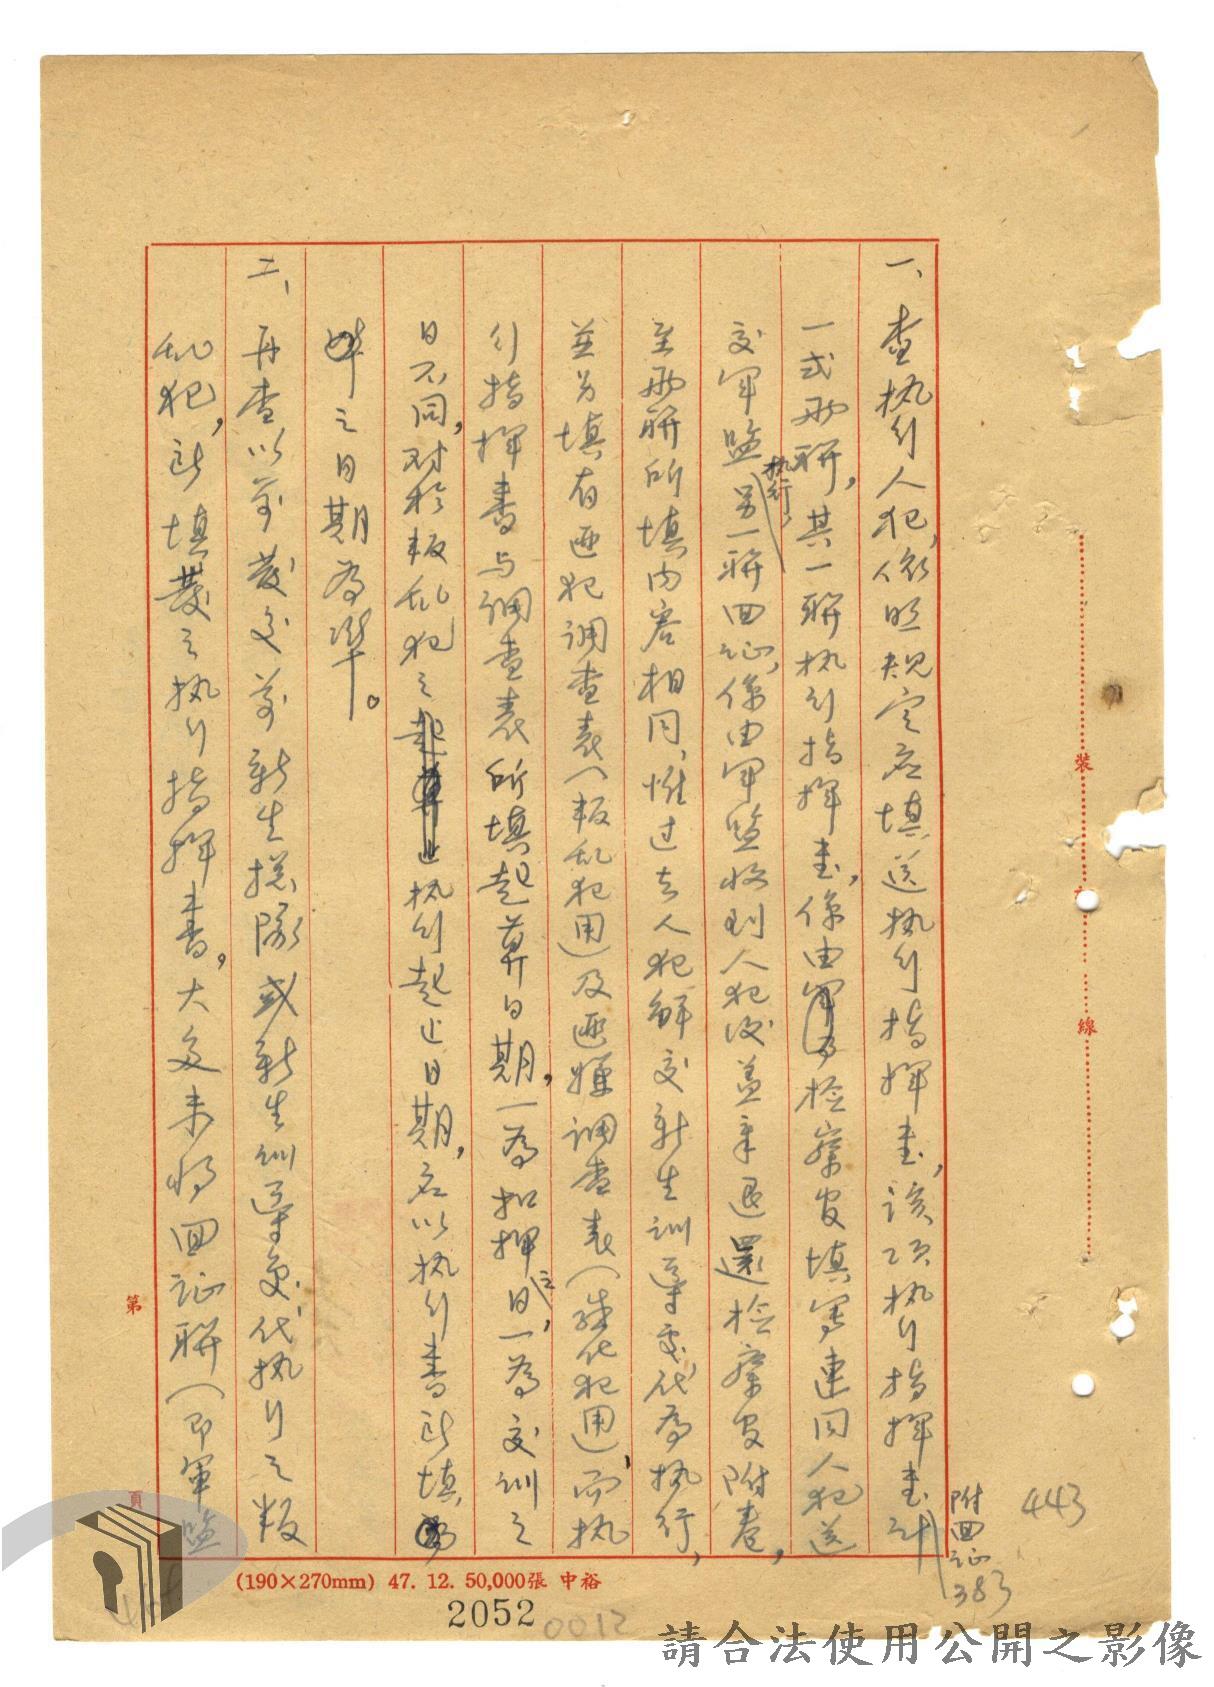 一、查執行人犯,依照規定應填送執行指揮書,該項執行指揮書計
附回証383
443
一式兩聯,其一聯執行指揮書,係由檢察官填寫連同人犯送
交軍監執行,另一聯回証,係由軍監收到人犯後蓋章退還檢察官附卷,
至兩聯所填內容相同,惟过去人犯解交新生訓導處代為執行,
並另填有匪犯調查表(叛乱犯用)及匪嫌調查表(感化犯用),而执
行指揮書与調查表所填起算日期,一為扣押之日,一為交訓之
日不同,对於叛乱犯之执行起止日期,应以执行書所填
之日期為準。
二、再查以前發交前新生總隊或新生訓導處代執行之叛
乱犯,所填發之执行指揮書,大多未將回証聯(即軍監
裝
線
第
頁
(190×270mm) 47. 12. 50,000張 中裕
2052
0012
請合法使用公開之影像